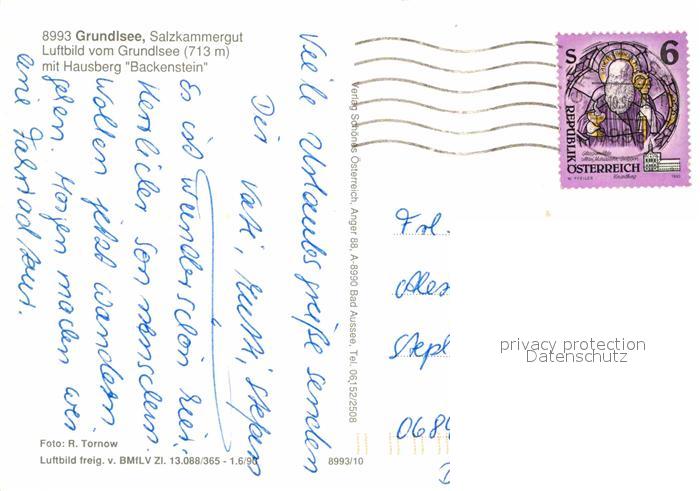 8993 Grundlsee, Salzkammergut
Luftbild vom Grundlsee (713 m)
mit Hausberg "Backenstein"
Viele Urlaubsgrüße senden
Dir Vati, Mutti, Stefan
Es ist wunderschön hier,
Herrlicher Sonnenschein.
Wollen jetzt wandern
gehen. Morgen machen wir
eine Fahrradtour.
Foto: R. Tornow
Luftbild freig. v. BMfLV Zl. 13.088/365 - 1.6/90
8993/10
Verlag Schönes Österreich, Anger 88, A-8990 Bad Aussee, Tel. 06152/2508
S 6
REPUBLIK
ÖSTERREICH
W. PFEILER
Frl.
Steph
068
privacy protection
Datenschutz